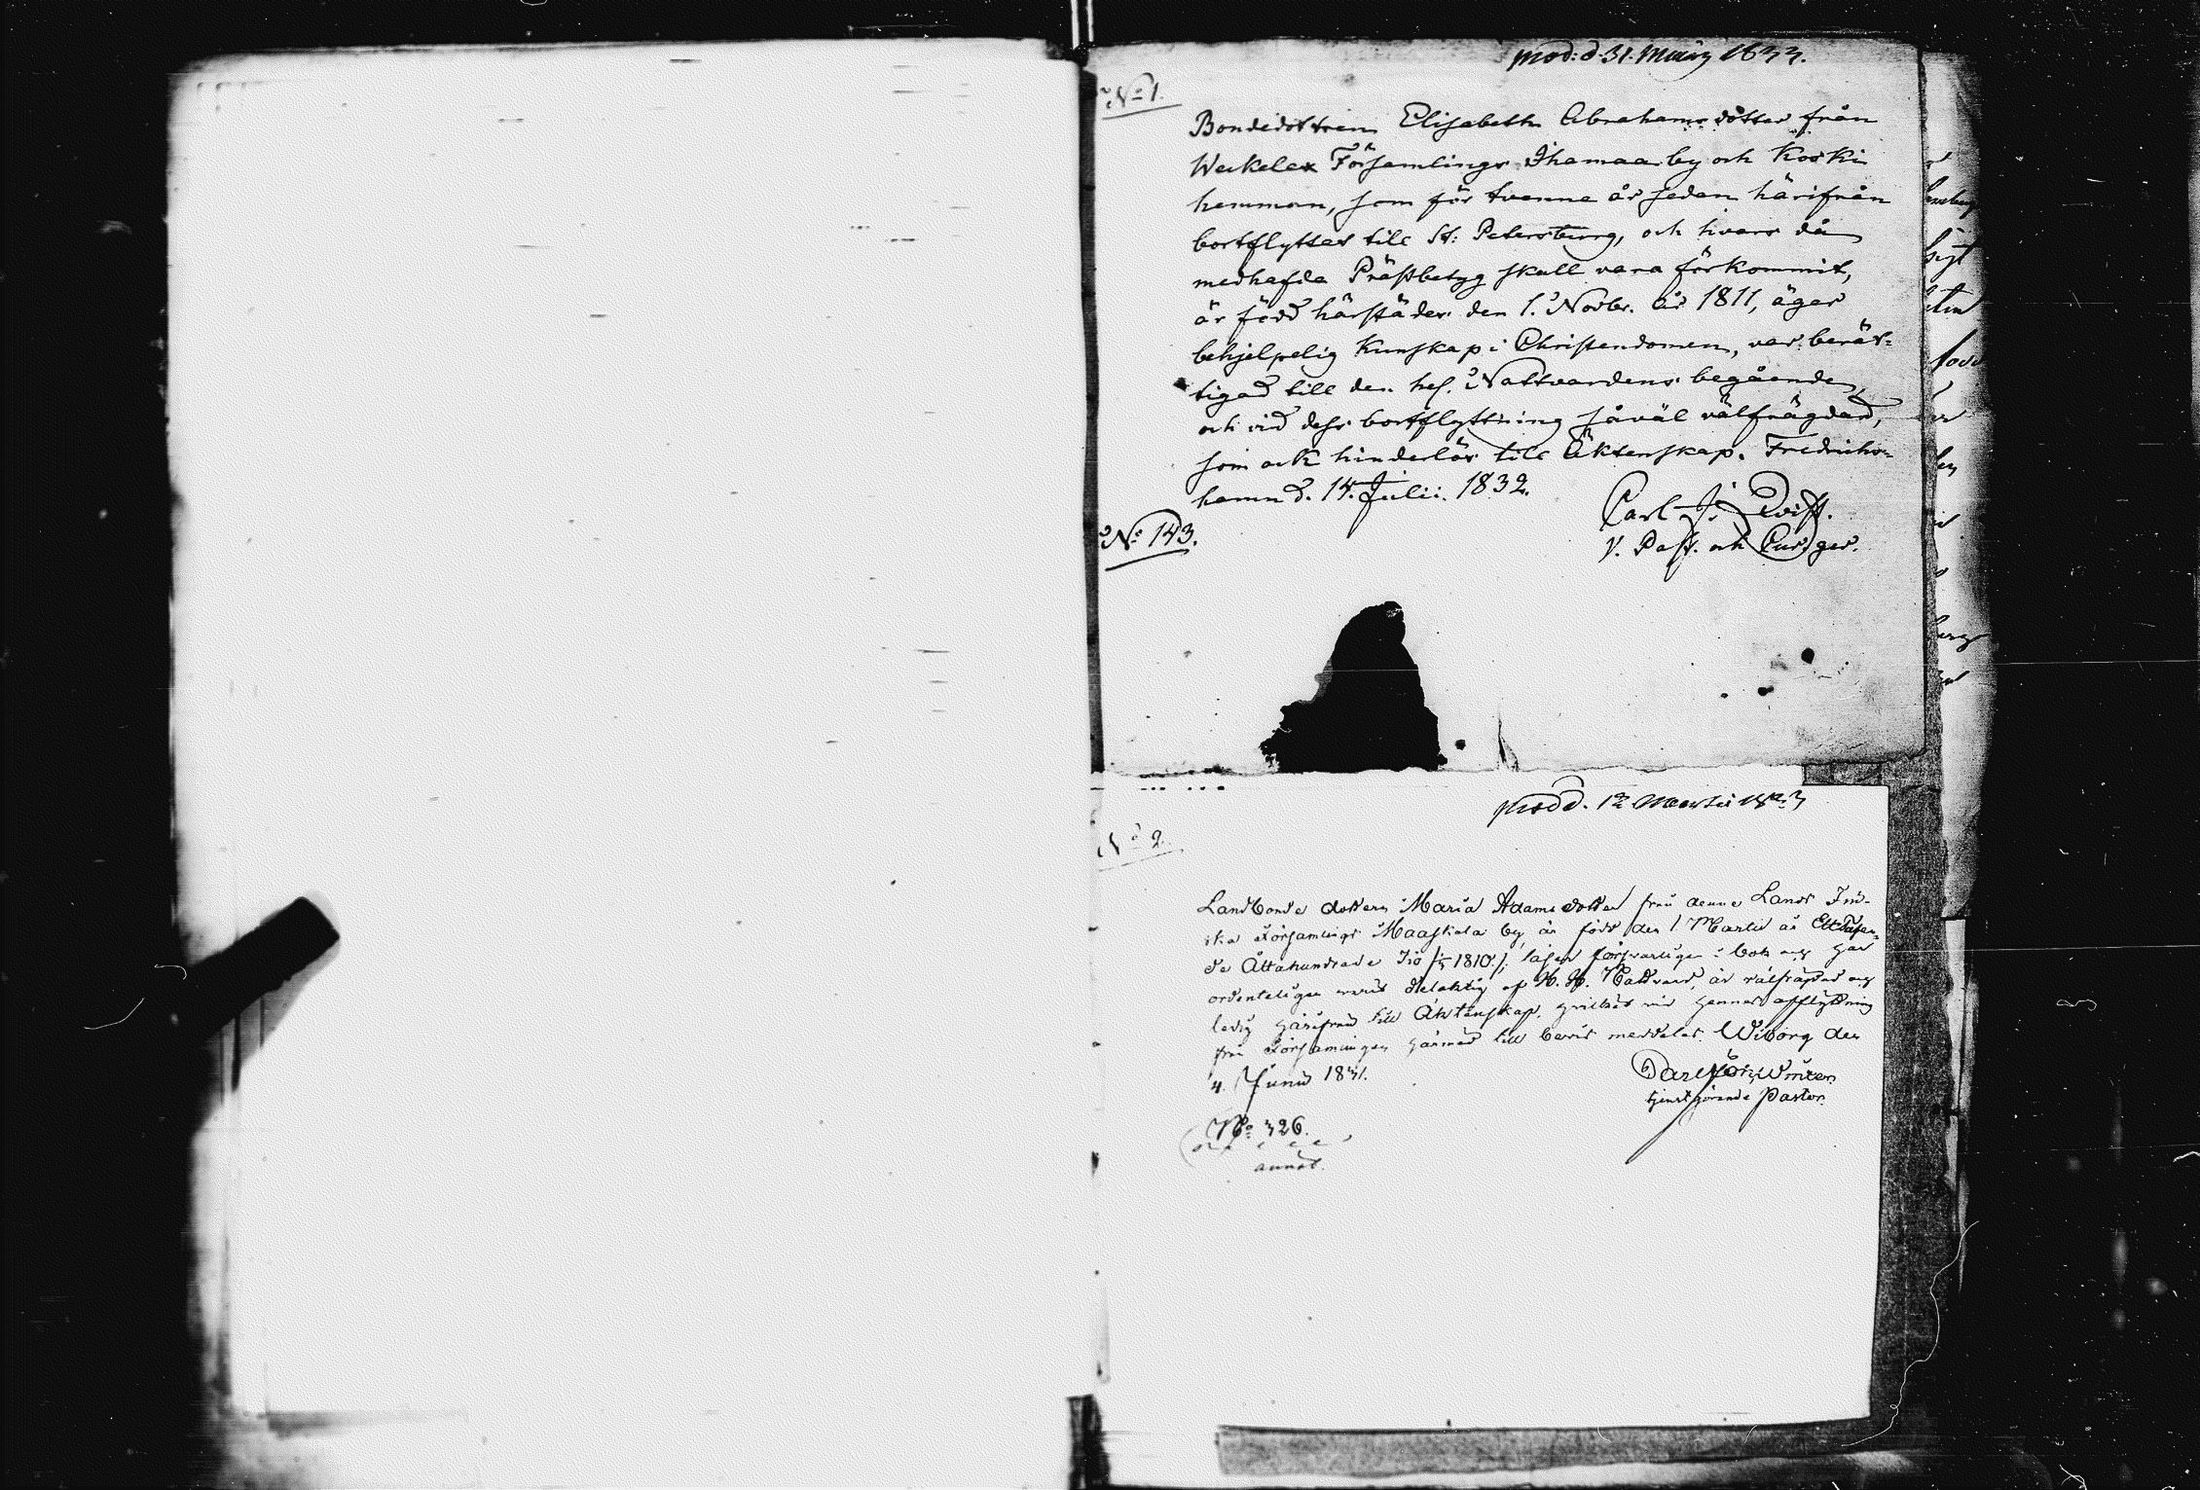 prod: d. 31. Martz 1833.
No 1.
Bondedottren Elisabeth Abrahamsdotter från
Weckelax Församlings Ihamaa by och Koski
hemman, som för tvenne år sedan härifrån
bortflyttat till St: Petersburg, och hvars då
medhafda Prästbetyg skall vara förkommit,
är född härstädes den 1. Novbr. år 1811, äger
behjelpelig Kunskap i Christendomen, var berät-
tigad till den hel. Nattvardens begående,
och vid dess bortflyttning såväl välfrägdad,
som ock hinderlös till Äktenskap. Fredrichs-
hamn d. 14. Julii. 1832.
Carl J.
V. Past. och
No 143.
prod d. 12 Martii 1833
No 2.
Landbonde dottern Maria Adamsdotter från denne Lands För-
Församlings Maaskola by är född den 1 Martii år Ett Tusen-
de Åttahundrade Tio /: 1810 :/ läser försvarligen i bok och har
ordenteligen varit delaktig af H. H. Nattvard, är välfrägdad och
ledig härifrån till Äktenskap, hvilket vid hennes afflyttning
från Församlingen härmed till bevis meddelas. Wiborg den
4. Junii 1831.
tjenstgörande Pastor.
No 326.
annot.